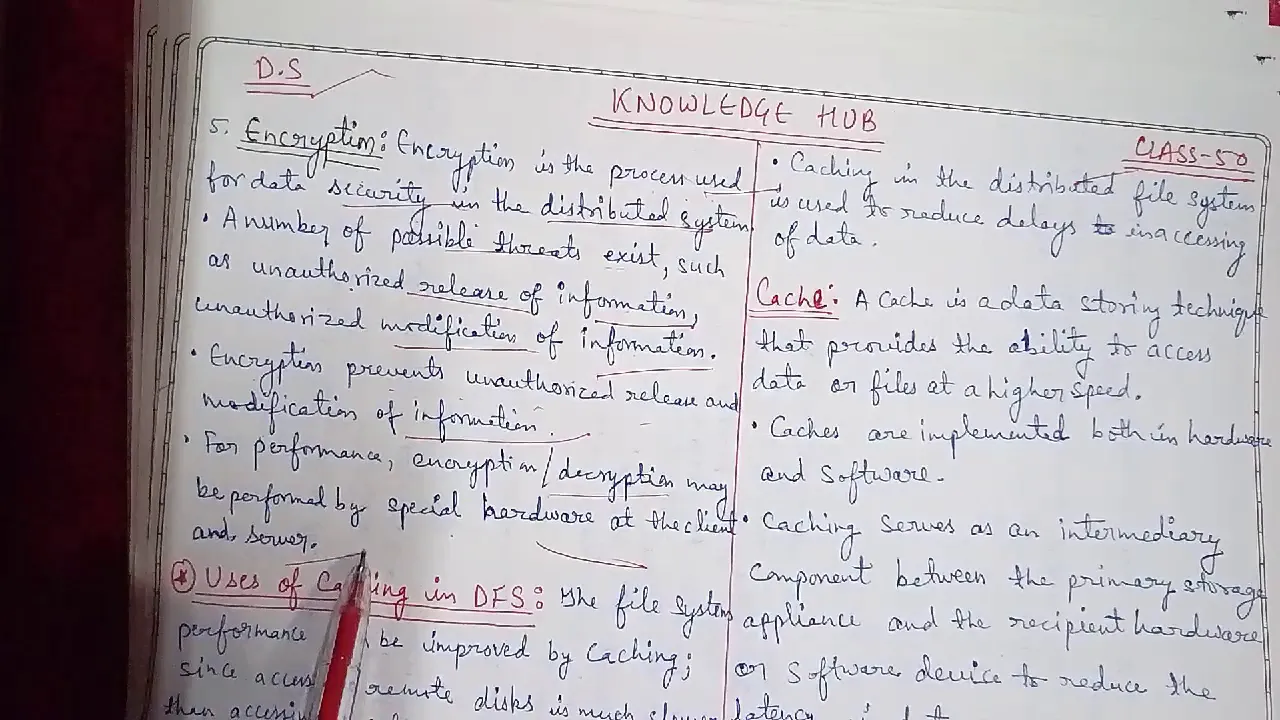 D.S
KNOWLEDGE HUB
CLASS-50
5. Encryption: Encryption is the process used
for data security in the distributed system
• A number of possible threats exist, such
as unauthorized release of information,
unauthorized modification of information.
• Encryption prevents unauthorized release and
modification of information.
• For performance, encryption/decryption may
be performed by special hardware at the client
and server.
* Uses of Caching in DFS: The file system
performance be improved by caching;
since access remote disks is much slower
than
• Caching in the distributed file system
is used to reduce delays in accessing
of data.
Cache: A cache is a data storing technique
that provides the ability to access
data or files at a higher speed.
• Caches are implemented both in hardware
and software.
• Caching serves as an intermediary
component between the primary storage
appliance and the recipient hardware
or software device to reduce the
latency